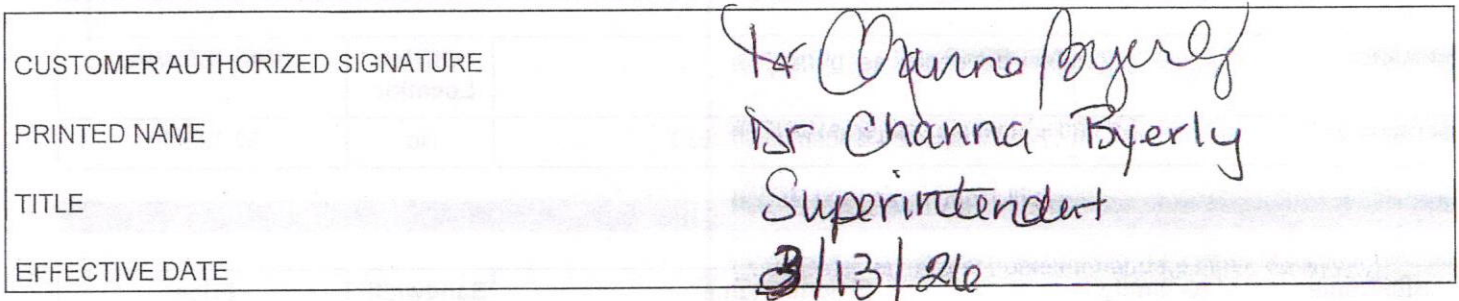 CUSTOMER AUTHORIZED SIGNATURE Dr Channa Byerly
PRINTED NAME Dr Channa Byerly
TITLE Superintendent
EFFECTIVE DATE 3/13/26